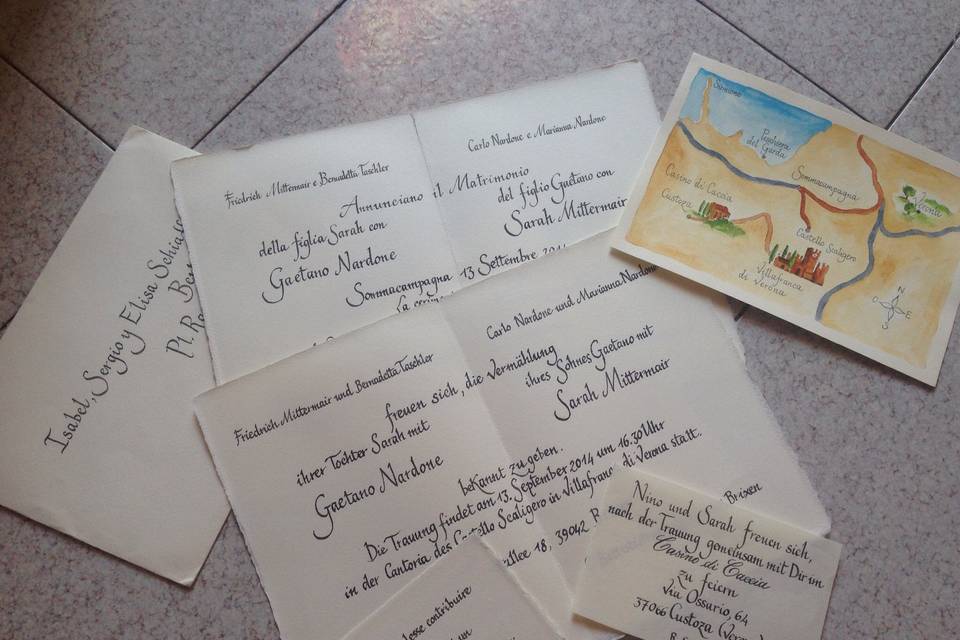 Isabel, Sergio y Elisa
Friedrich Mittermair e Benedetta Taschler
Annunciano
della figlia Sarah con
Gaetano Nardone
Sommacampagna
Carlo Nardone e Marianna Nardone
il Matrimonio
del figlio Gaetano con
Sarah Mittermair
13 Settembre 2014
Friedrich Mittermair und Benedetta Taschler
Carlo Nardone und Marianna Nardone
freuen sich, die Vermählung
ihrer Tochter Sarah mit
ihres Sohnes Gaetano mit
Gaetano Nardone
Sarah Mittermair
bekannt zu geben.
Die Trauung findet am 13. September 2014 um 16.30 Uhr
in der Cantoria des Castello Scaligero in Villafranca di Verona statt.
18, 39042 Brixen
esse contribuire
Nino und Sarah freuen sich,
nach der Trauung gemeinsam mit Dir im
Casino di Caccia
zu feiern
Via Ossario, 64
37066 Custoza
Sirmione
Peschiera
del Garda
Casino di Caccia
Custoza
Sommacampagna
Verona
Castello Scaligero
Villafranca
di Verona
N
O
E
S